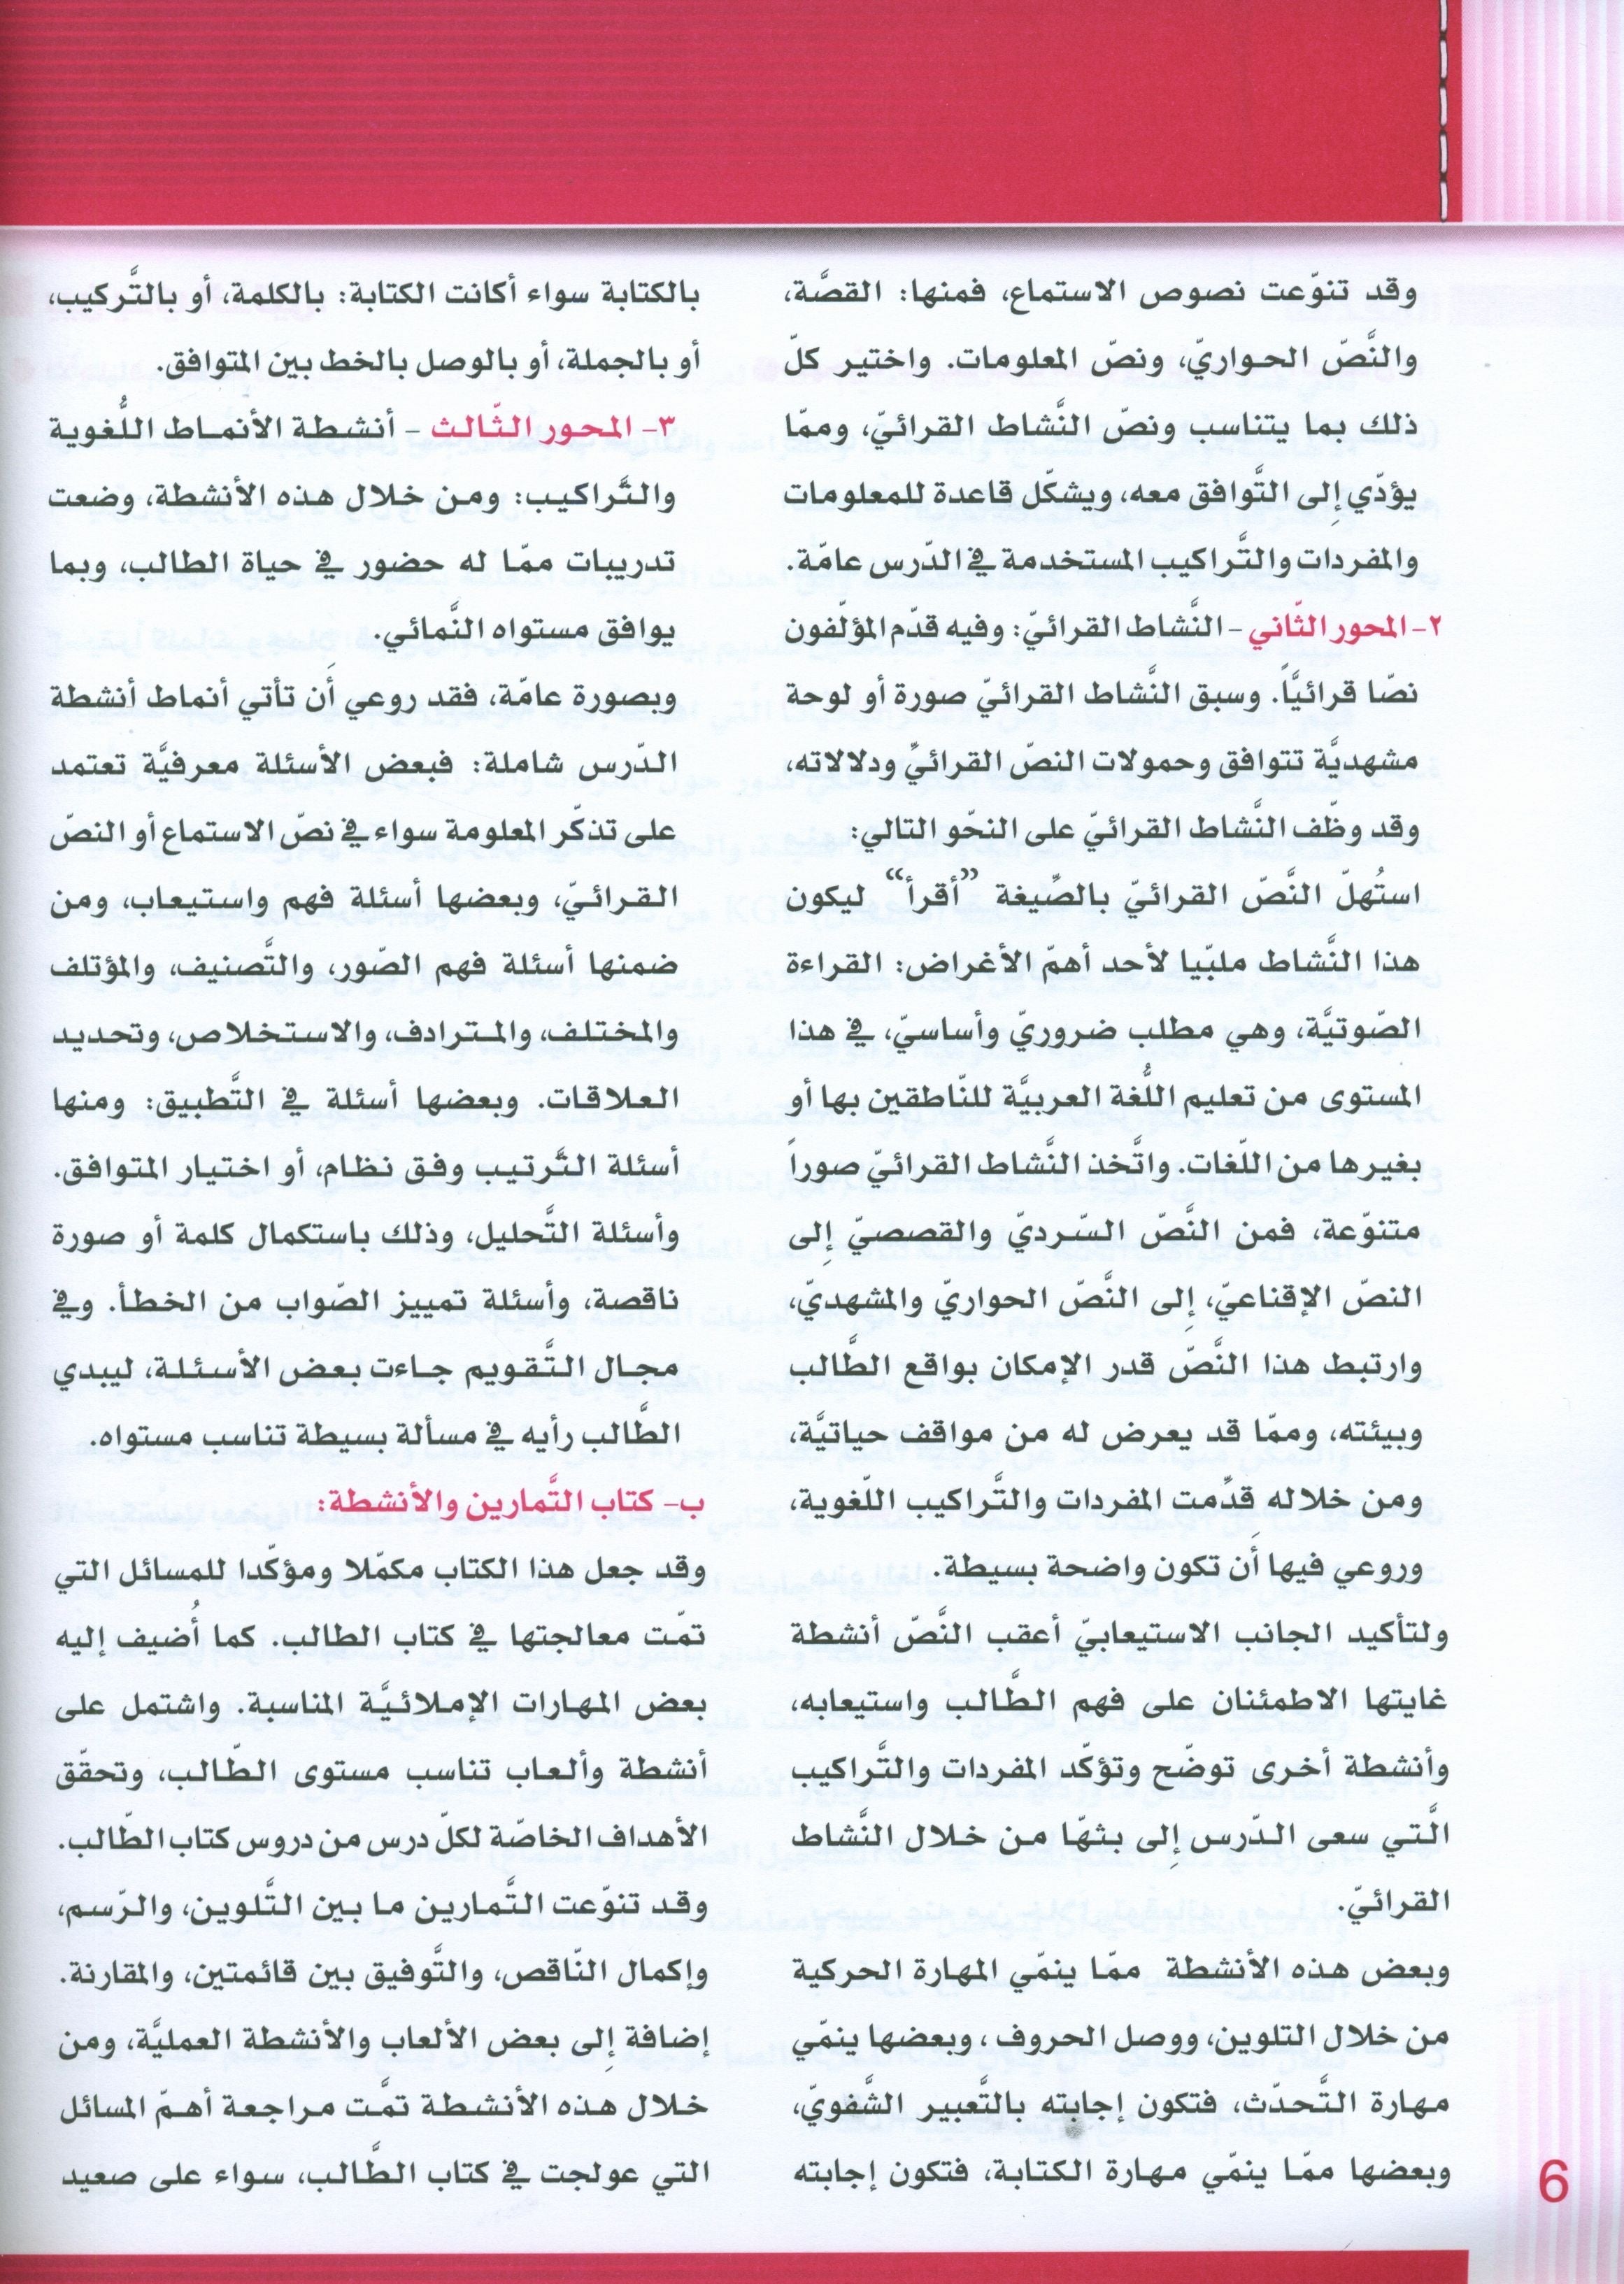 وقد تنوّعت نصوص الاستماع، فمنها: القصَّة،
والنَّصّ الحواريّ، ونصّ المعلومات. واختير كلّ
ذلك بما يتناسب ونصّ النَّشاط القرائيّ، وممّا
يؤدّي إلى التَّوافق معه، ويشكّل قاعدة للمعلومات
والمفردات والتَّراكيب المستخدمة في الدّرس عامّة.
٢- المحور الثّاني - النَّشاط القرائيّ: وفيه قدّم المؤلّفون
نصّا قرائيَّاً. وسبق النَّشاط القرائيّ صورة أو لوحة
مشهديَّة تتوافق وحمولات النصّ القرائيِّ ودلالاته،
وقد وظّف النَّشاط القرائيّ على النحّو التالي:
استُهلّ النَّصّ القرائيّ بالصِّيغة ”أقرأ“ ليكون
هذا النَّشاط ملبّيا لأحد أهمّ الأغراض: القراءة
الصّوتيَّة، وهي مطلب ضروريّ وأساسيّ، في هذا
المستوى من تعليم اللُّغة العربيَّة للنّاطقين بها أو
بغيرها من اللّغات. واتَّخذ النَّشاط القرائيّ صوراً
متنوّعة، فمن النَّصّ السّرديّ والقصصيّ إلى
النصّ الإقناعيّ، إلى النَّصّ الحواريّ والمشهديّ،
وارتبط هذا النَّصّ قدر الإمكان بواقع الطَّالب
وبيئته، وممّا قد يعرض له من مواقف حياتيَّة،
ومن خلاله قدِّمت المفردات والتَّراكيب اللّغوية،
وروعي فيها أن تكون واضحة بسيطة.
ولتأكيد الجانب الاستيعابيّ أعقب النَّصّ أنشطة
غايتها الاطمئنان على فهم الطَّالب واستيعابه،
وأنشطة أخرى توضّح وتؤكّد المفردات والتَّراكيب
الَّتي سعى الدّرس إلى بثهّا من خلال النَّشاط
القرائيّ.
وبعض هذه الأنشطة ممّا ينمّي المهارة الحركية
من خلال التلوين، ووصل الحروف ، وبعضها ينمّي
مهارة التَّحدّث، فتكون إجابته بالتَّعبير الشَّفويّ،
وبعضها ممّا ينمّي مهارة الكتابة، فتكون إجابته
بالكتابة سواء أكانت الكتابة: بالكلمة، أو بالتَّركيب،
أو بالجملة، أو بالوصل بالخط بين المتوافق.
٣- المحور الثّالث - أنشطة الأنماط اللُّغوية
والتَّراكيب: ومن خلال هذه الأنشطة، وضعت
تدريبات ممّا له حضور في حياة الطالب، وبما
يوافق مستواه النَّمائي.
وبصورة عامّة، فقد روعي أن تأتي أنماط أنشطة
الدّرس شاملة: فبعض الأسئلة معرفيَّة تعتمد
على تذكّر المعلومة سواء في نصّ الاستماع أو النصّ
القرائيّ، وبعضها أسئلة فهم واستيعاب، ومن
ضمنها أسئلة فهم الصّور، والتَّصنيف، والمؤتلف
والمختلف، والمترادف، والاستخلاص، وتحديد
العلاقات. وبعضها أسئلة في التَّطبيق: ومنها
أسئلة التَّرتيب وفق نظام، أو اختيار المتوافق.
وأسئلة التَّحليل، وذلك باستكمال كلمة أو صورة
ناقصة، وأسئلة تمييز الصّواب من الخطأ. وفي
مجال التَّقويم جاءت بعض الأسئلة، ليبدي
الطَّالب رأيه في مسألة بسيطة تناسب مستواه.
ب- كتاب التَّمارين والأنشطة:
وقد جعل هذا الكتاب مكمّلا ومؤكّدا للمسائل التي
تمّت معالجتها في كتاب الطالب. كما أُضيف إليه
بعض المهارات الإملائيَّة المناسبة. واشتمل على
أنشطة وألعاب تناسب مستوى الطّالب، وتحقّق
الأهداف الخاصّة لكلّ درس من دروس كتاب الطّالب.
وقد تنوّعت التَّمارين ما بين التَّلوين، والرّسم،
وإكمال النّاقص، والتَّوفيق بين قائمتين، والمقارنة.
إضافة إلى بعض الألعاب والأنشطة العمليَّة، ومن
خلال هذه الأنشطة تمَّت مراجعة أهمّ المسائل
التي عولجت في كتاب الطَّالب، سواء على صعيد
6